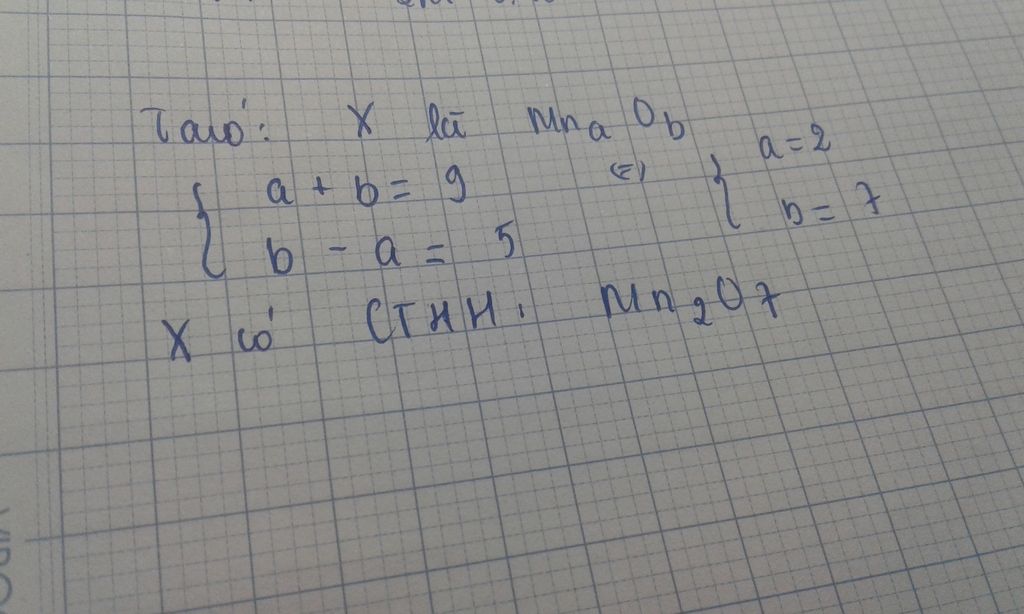 Ta có: X là MnaOb
a + b = 9 <=> a = 2
b - a = 5 b = 7
X có CTHH: Mn2O7